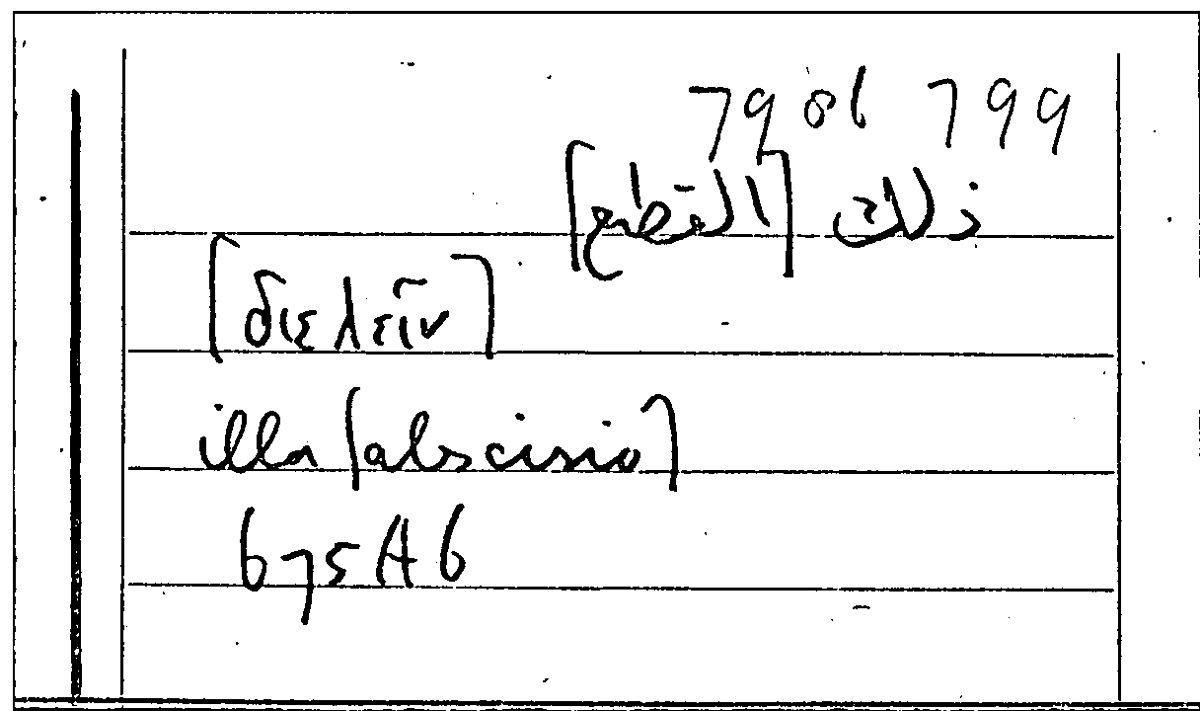 79 06 799
ذلك [القطع]
[διελεῖν]
illa [abscisio]
675A6